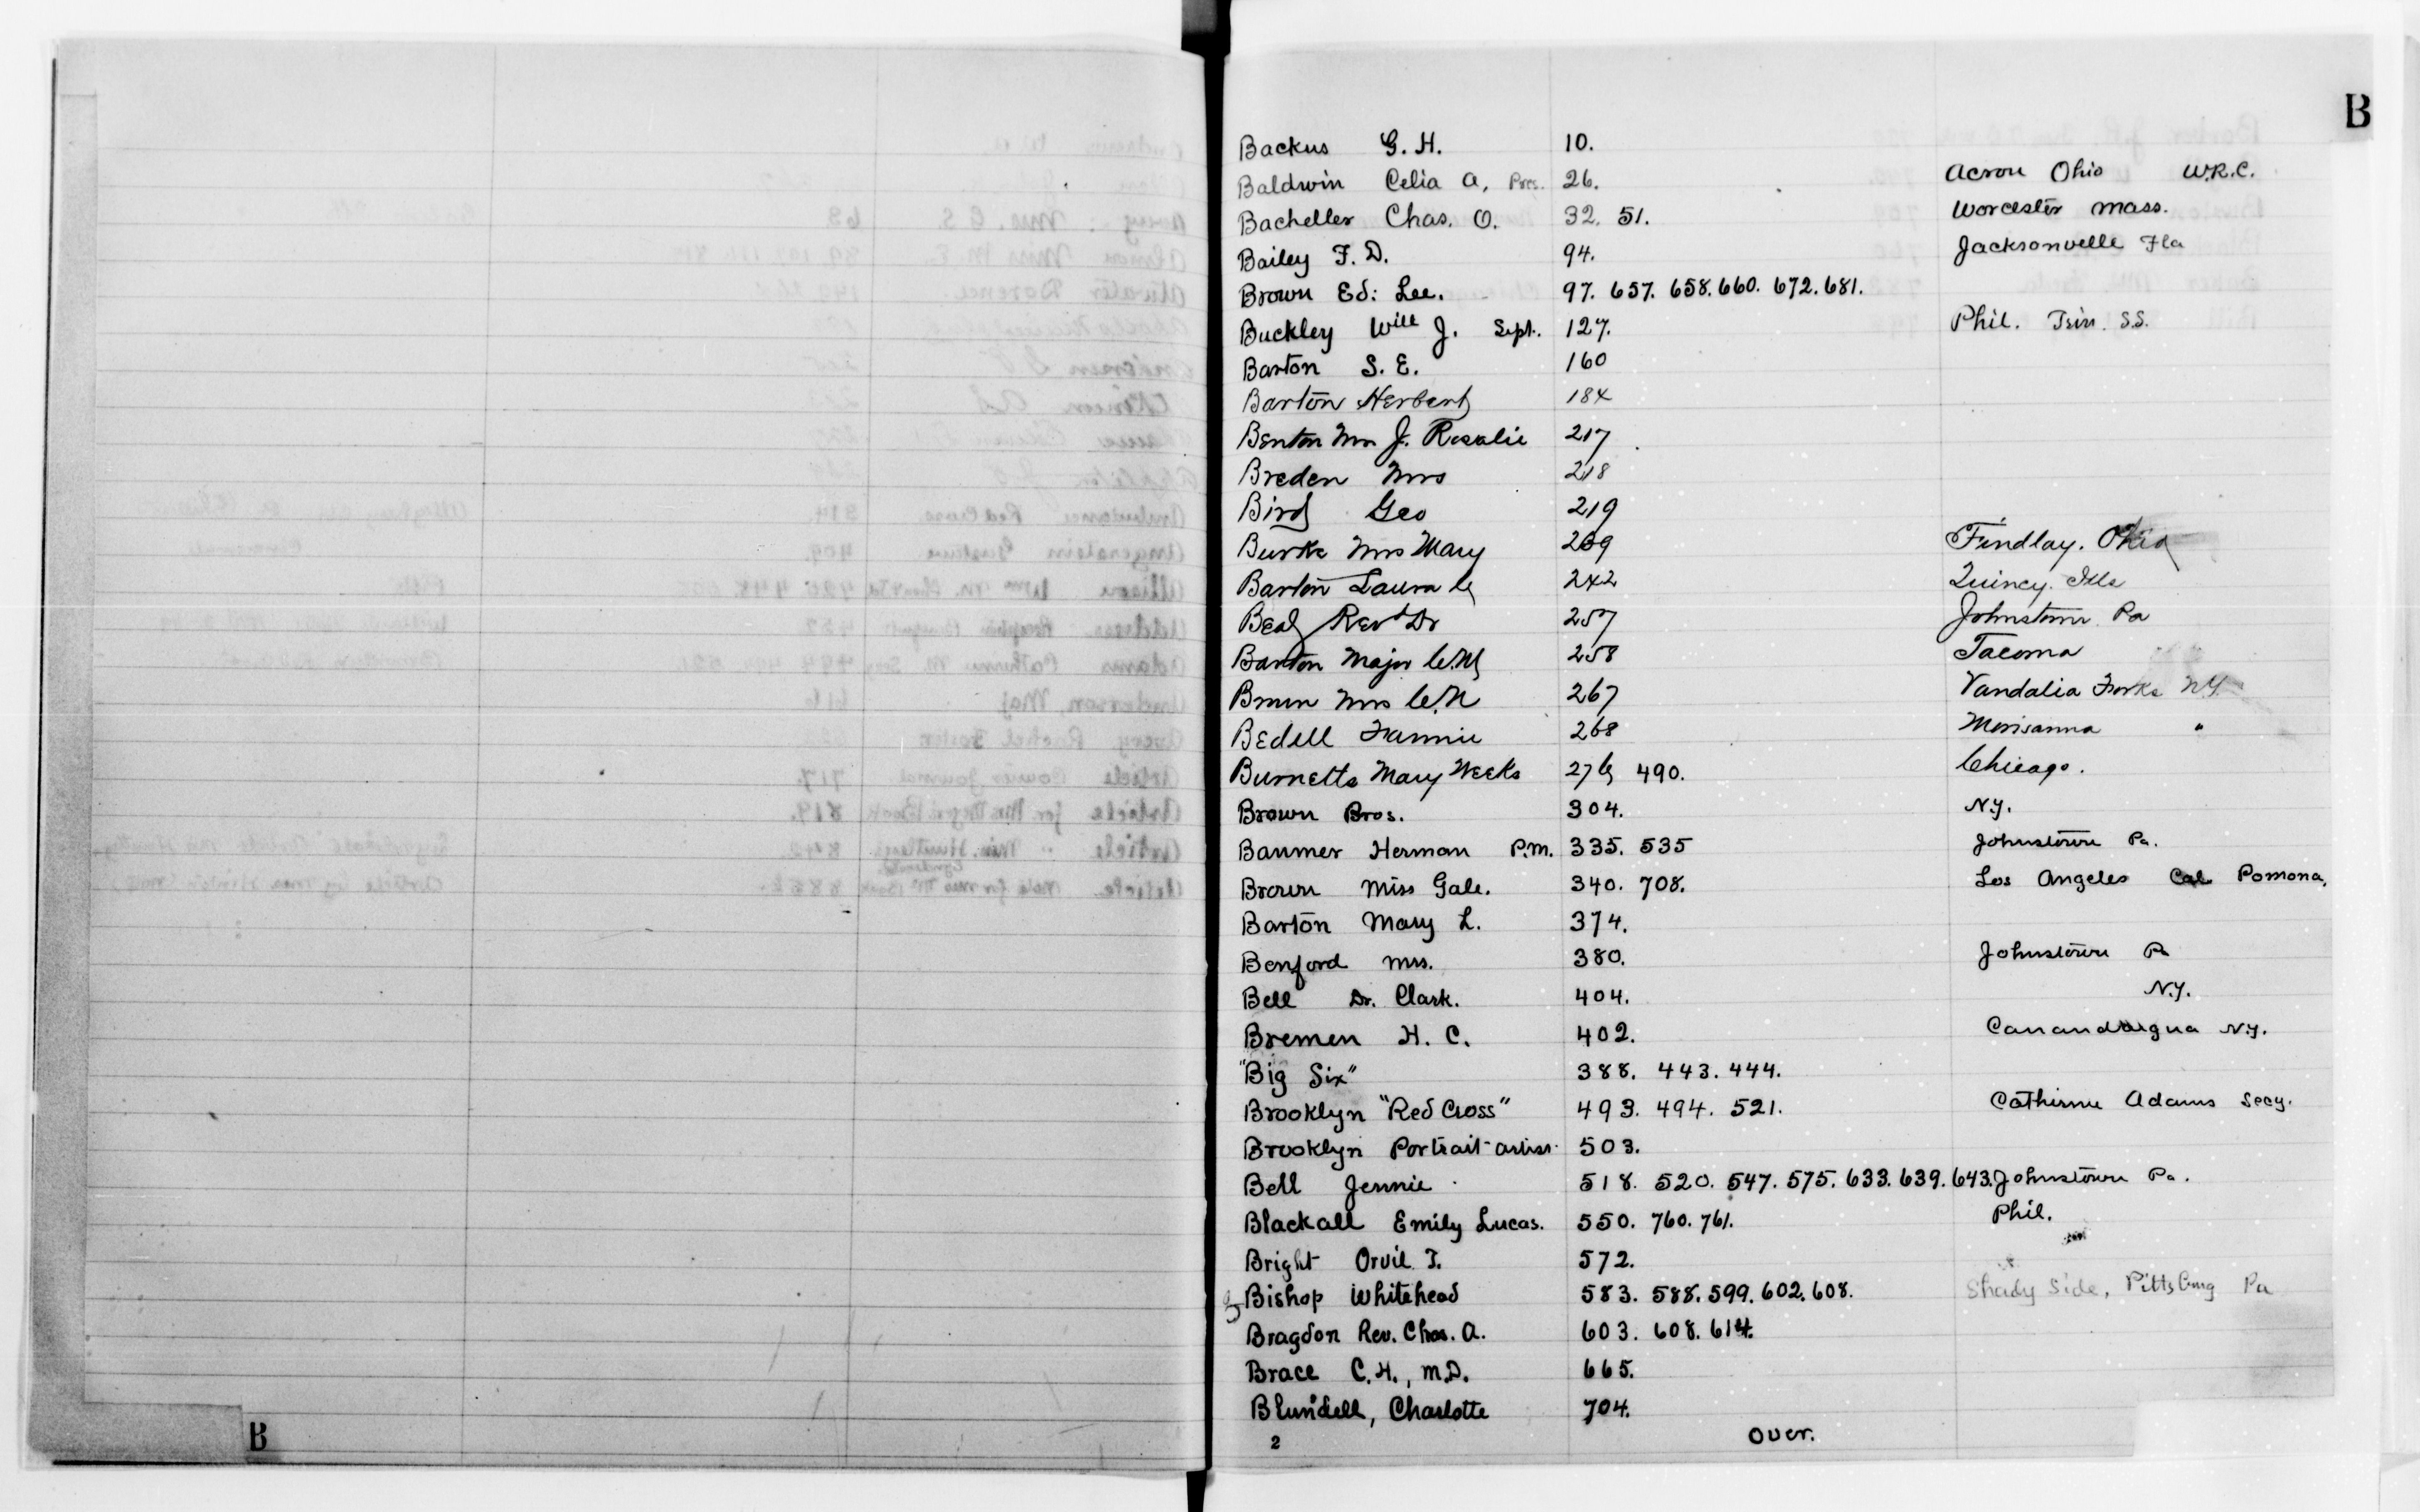 B
Backus G. H. 10.
Baldwin Celia A, Pres. 26. Acron Ohio W.R.C.
Bacheller Chas. O. 32. 51. Worcester Mass.
Bailey F. D. 94. Jacksonvelle Fla
Brown Ed: Lee. 97. 657. 658. 660. 672. 681.
Buckley Will J. Sept. 127. Phil. S.S.
Barton S. E. 160
Barton Herbert 184
Benton Mrs J. Rosalie 217
Breden Mrs 218
Bird Geo 219
Burke Mrs Mary 209 Findlay. Ohio
Barton Laura 242 Quincy. Ills
Beal Rev Dr 257 Johnstown Pa
Barton Major 258 Tacoma
Brown Mrs C. N 267 Vandalia Forks NY
Bedell Fannie 268 Morisanna "
Burnetts Mary Weeks 276 490. Chicago.
Brown Bros. 304. N.Y.
Baumer Herman P.M. 335. 535 Johnstown Pa.
Brown Miss Gale. 340. 708. Los Angeles Cal Pomona,
Barton Mary L. 374.
Benford Mrs. 380. Johnstown Pa
Bell Dr. Clark. 404. N.Y.
Bremen H. C. 402. Canandaigua N.Y.
"Big Six" 388. 443. 444.
Brooklyn "Red Cross" 493. 494. 521. Catherine Adams Secy.
Brooklyn Portrait artist 503.
Bell Jennie 518. 520. 547. 575. 633. 639. 643. Johnstown Pa.
Blackall Emily Lucas. 550. 760. 761. Phil.
Bright Orvil T. 572.
Bishop Whitehead 583. 588. 599. 602. 608. Shady Side, Pittsburg Pa
Bragdon Rev. Chas. A. 603. 608. 614.
Brace C. H., M.D. 665.
Blundell, Charlotte 704.
2 over.
B